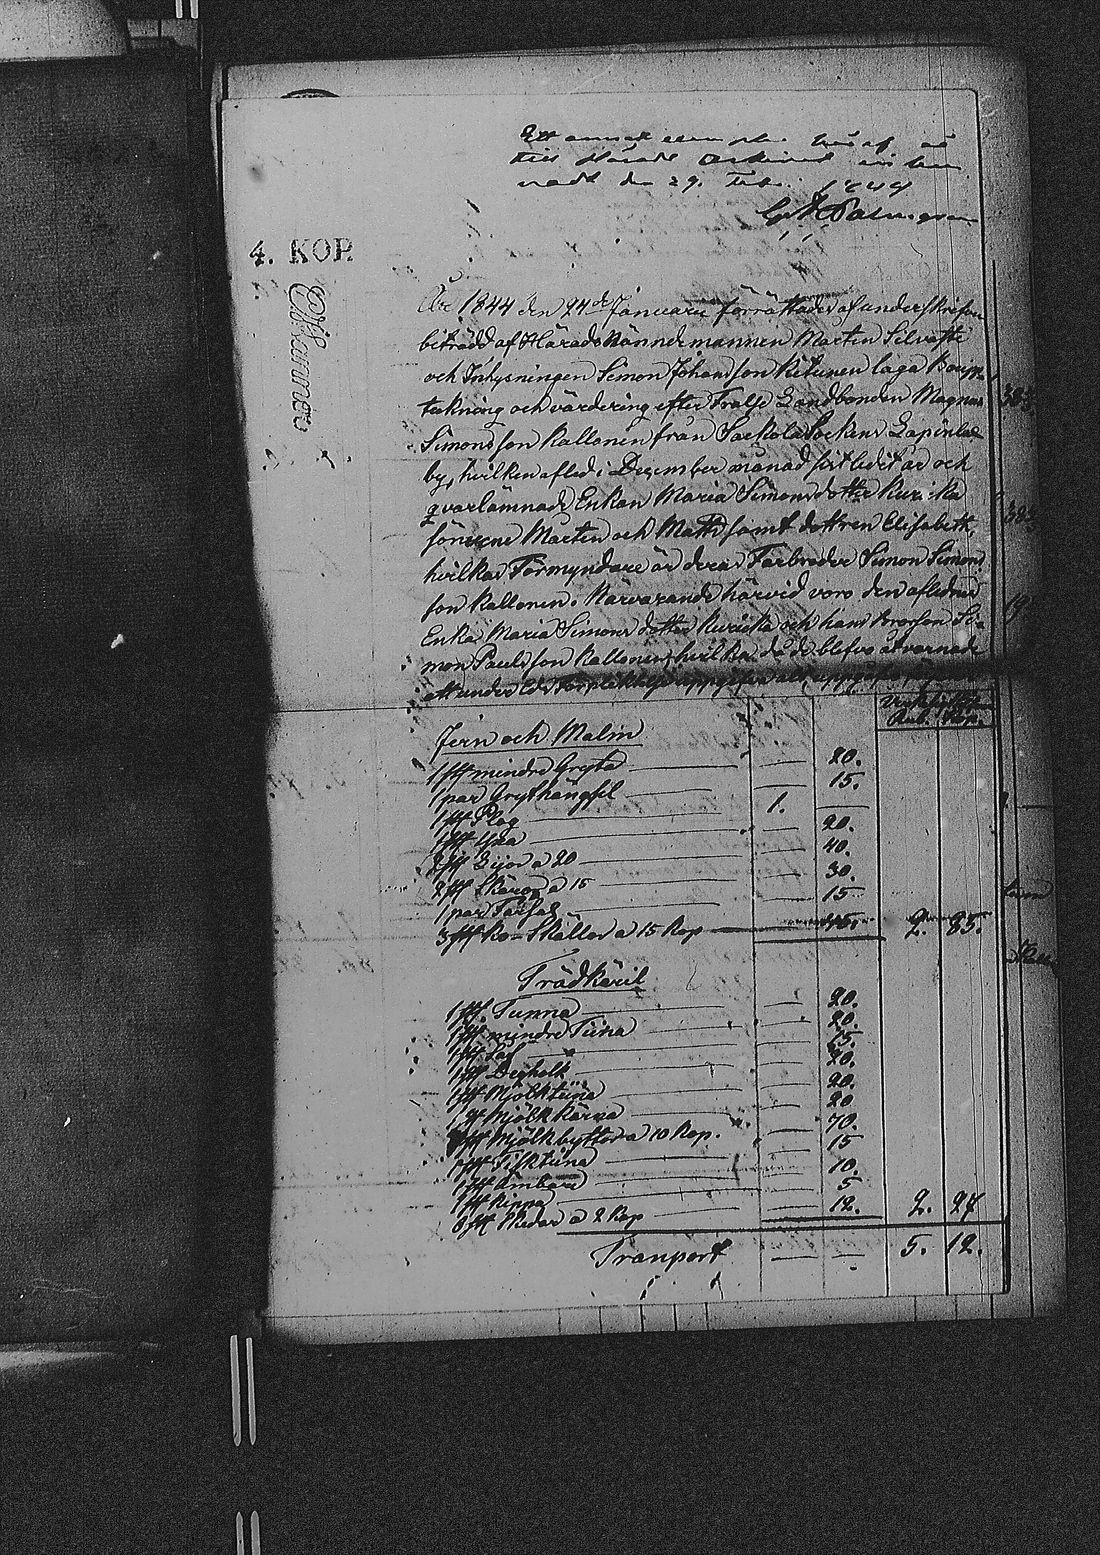 Ett annat exemplar häraf är
till Härads Arkivet inlem
nadt den 29. Feb. 1844
4. KOP.
År 1844 den 24de Januarii förrättades af underskrifven
biträdd af Häradsnämndemannen Martin Silvasti
och Inhysningen Simon Johansson Kitunen laga Boupp
teckning och värdering efter Fralse Landbonden Magnus
Simonsson Kallonen från Sackola Socken Lapinlax
by, hvilken afled i December månad sistledit år och
qvarlämnade Enkan Maria Simonsdotter Kuricka
sönerne Marten och Matts samt dottren Elisabeth,
hvilkas Förmyndare är deras Farbroder Simon Simons
son Kallonen. Närvarande härvid voro den aflednes
Enka Maria Simonsdotter Kuricka och hans brorson Si-
mon Paulsson Kallonen, hvilka då de blefvo åtvarnade
att under Eds förpliktelse uppgifva allt
Rub. Kop.
Jern och Malm
1 st mindre Gryta 20.
1 par Grythängsel 15.
1 st Plog 1.
1 st Yxa 20.
2 st Lijor a 20 40.
2 st Skäror a 15 30.
1 par 15
3 st Ko-Skällor a 15 Kop 45. 2. 85.
Trädkäril
1 st. Tunna 20.
1 st mindre Tiina 20.
1 st 15.
1 st 20.
1 st Mjölktiina 20.
1 st Mjölkkärna 20
7 st Mjölkbyttor a 10 Kop. 70.
1 st Fisktiina 15
1 st Ämbare 10.
1 st Kippa 5
6 st Skedar a 2 Kop 12. 2. 27
Tranport 5. 12.